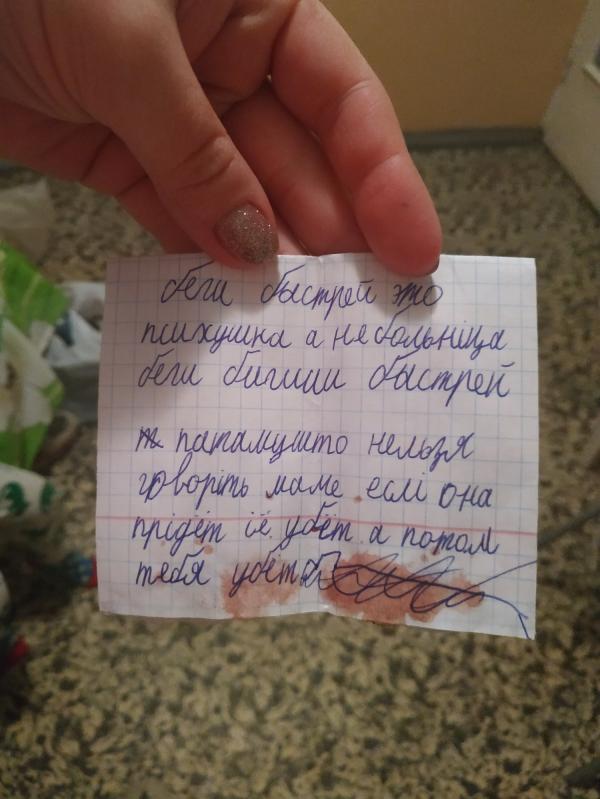 беги быстрей это
психушка а не больніца
беги бигиии быстрей
патамушто нельзя
говоріть маме еслі она
прідёт её убёт а потом
тебя убёт